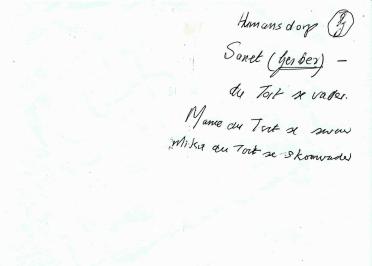 Humansdorp
Sanet (Gerber) -
du Toit se vader.
du Toit se
Mika du Toit se skoonvader